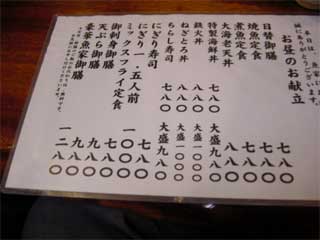 本日は、魚家
誠にありがとうございます。
お昼のお献立
日替御膳 七八〇
焼魚定食 七八〇
煮魚定食 七八〇
大海老天丼 八八〇
特製海鮮丼 七八〇 大盛九八〇
鉄火丼 七八〇 大盛一〇〇〇
ねぎとろ丼 七八〇 大盛一〇〇〇
ちらし寿司 七八〇 大盛九八〇
にぎり寿司 七八〇
にぎり一・五人前 一〇〇〇
ミックスフライ定食 七八〇
御刺身御膳 九八〇
天ぷら御膳 九八〇
豪華魚家御膳 一二八〇